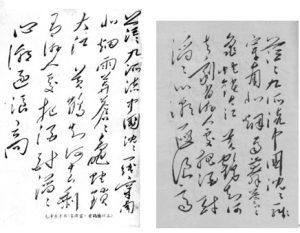 茫茫九派流中国沈沈一线穿南
北烟雨莽苍苍龟蛇锁
大江 黄鹤知何去剩
有游人处把酒酹滔滔
心潮逐浪高
茫茫九派流中国沈沈一线
穿南北烟雨莽苍苍
龟蛇锁大江 黄鹤知何
去剩有游人处把酒酹
滔滔心潮逐浪高